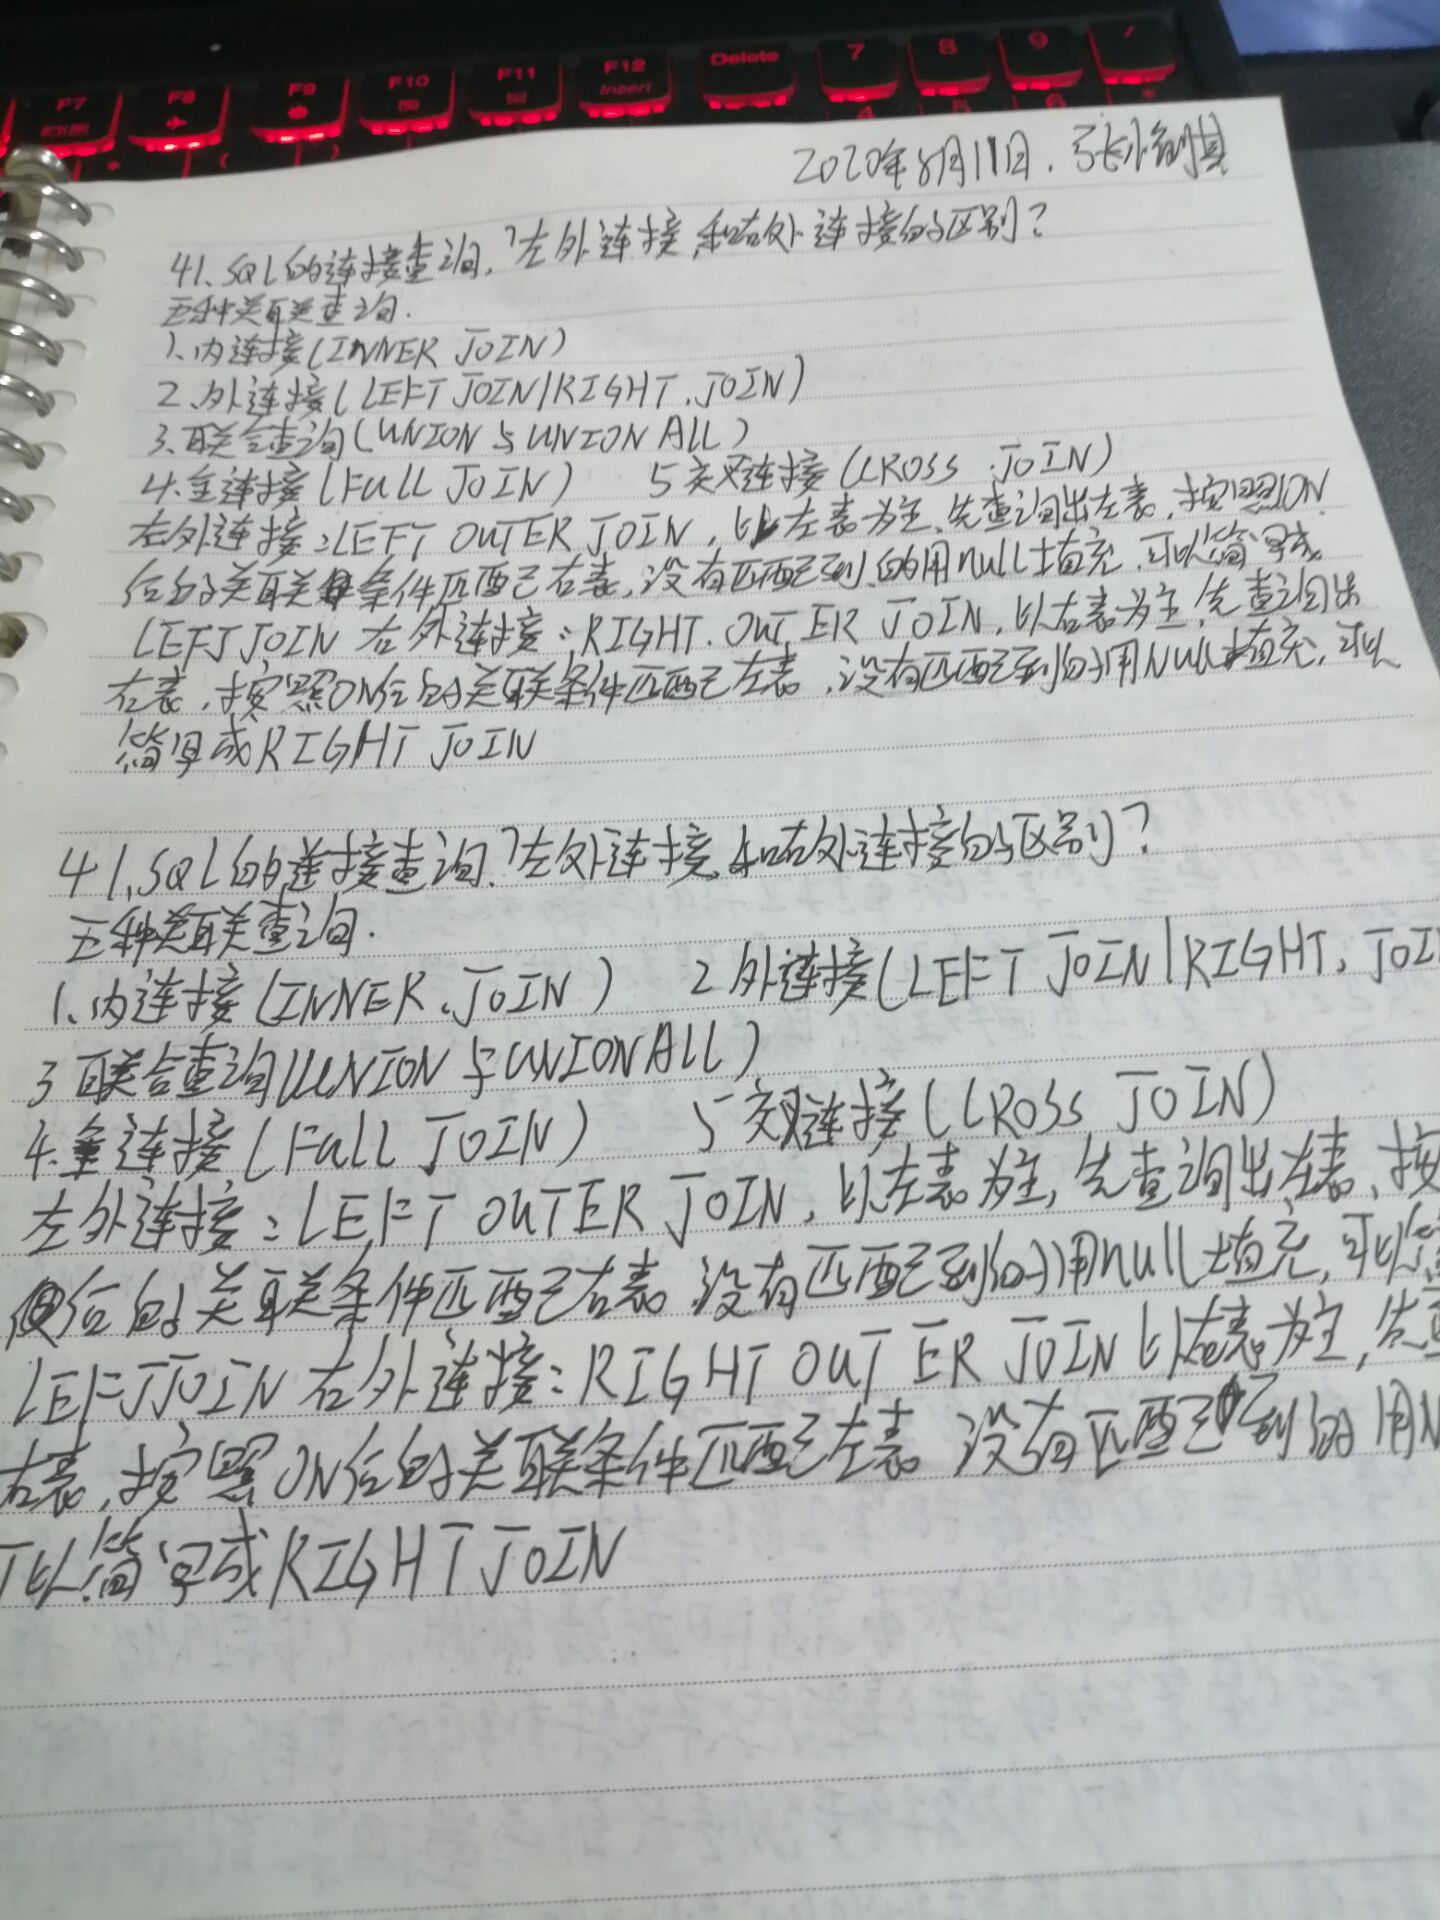 F7 F8 F9 F10 F11 F12 Delete 7 8 9 /
Insert 4 5 6
2020年8月11日.张
41.SQL的连接查询,?左外连接,和右外连接的区别?
五种关联查询.
1、内连接(INNER JOIN)
2、外连接(LEFT JOIN/RIGHT.JOIN)
3、联合查询(UNION与UNION ALL)
4.全连接(FULL JOIN) 5交叉连接(CROSS JOIN)
左外连接:LEFT OUTER JOIN,以左表为主、先查询出左表,按照ON
后的关联条件匹配右表,没有匹配到的用null填充,可以简写成
LEFT JOIN 右外连接:RIGHT.OUTER JOIN,以右表为主,先查询出
右表,按照ON后的关联条件匹配左表,没有匹配到的用NULL填充,可以
简写成RIGHT JOIN
41.SQL的连接查询.?左外连接,和右外连接的区别?
五种关联查询.
1、内连接(INNER.JOIN) 2外连接(LEFT JOIN|RIGHT,JOI
3联合查询(UNION与UNION ALL)
4.全连接(FULL JOIN) 5交叉连接(CROSS JOIN)
左外连接:LEFT OUTER JOIN,以左表为主,先查询出左表,按
后的关联条件匹配右表 没有匹配到的用null填充,可以
LEFT JOIN 右外连接:RIGHT OUTER JOIN 以右表为主,先
右表,按照ON后的关联条件匹配左表 没有匹配到的用N
可以简写成RIGHT JOIN